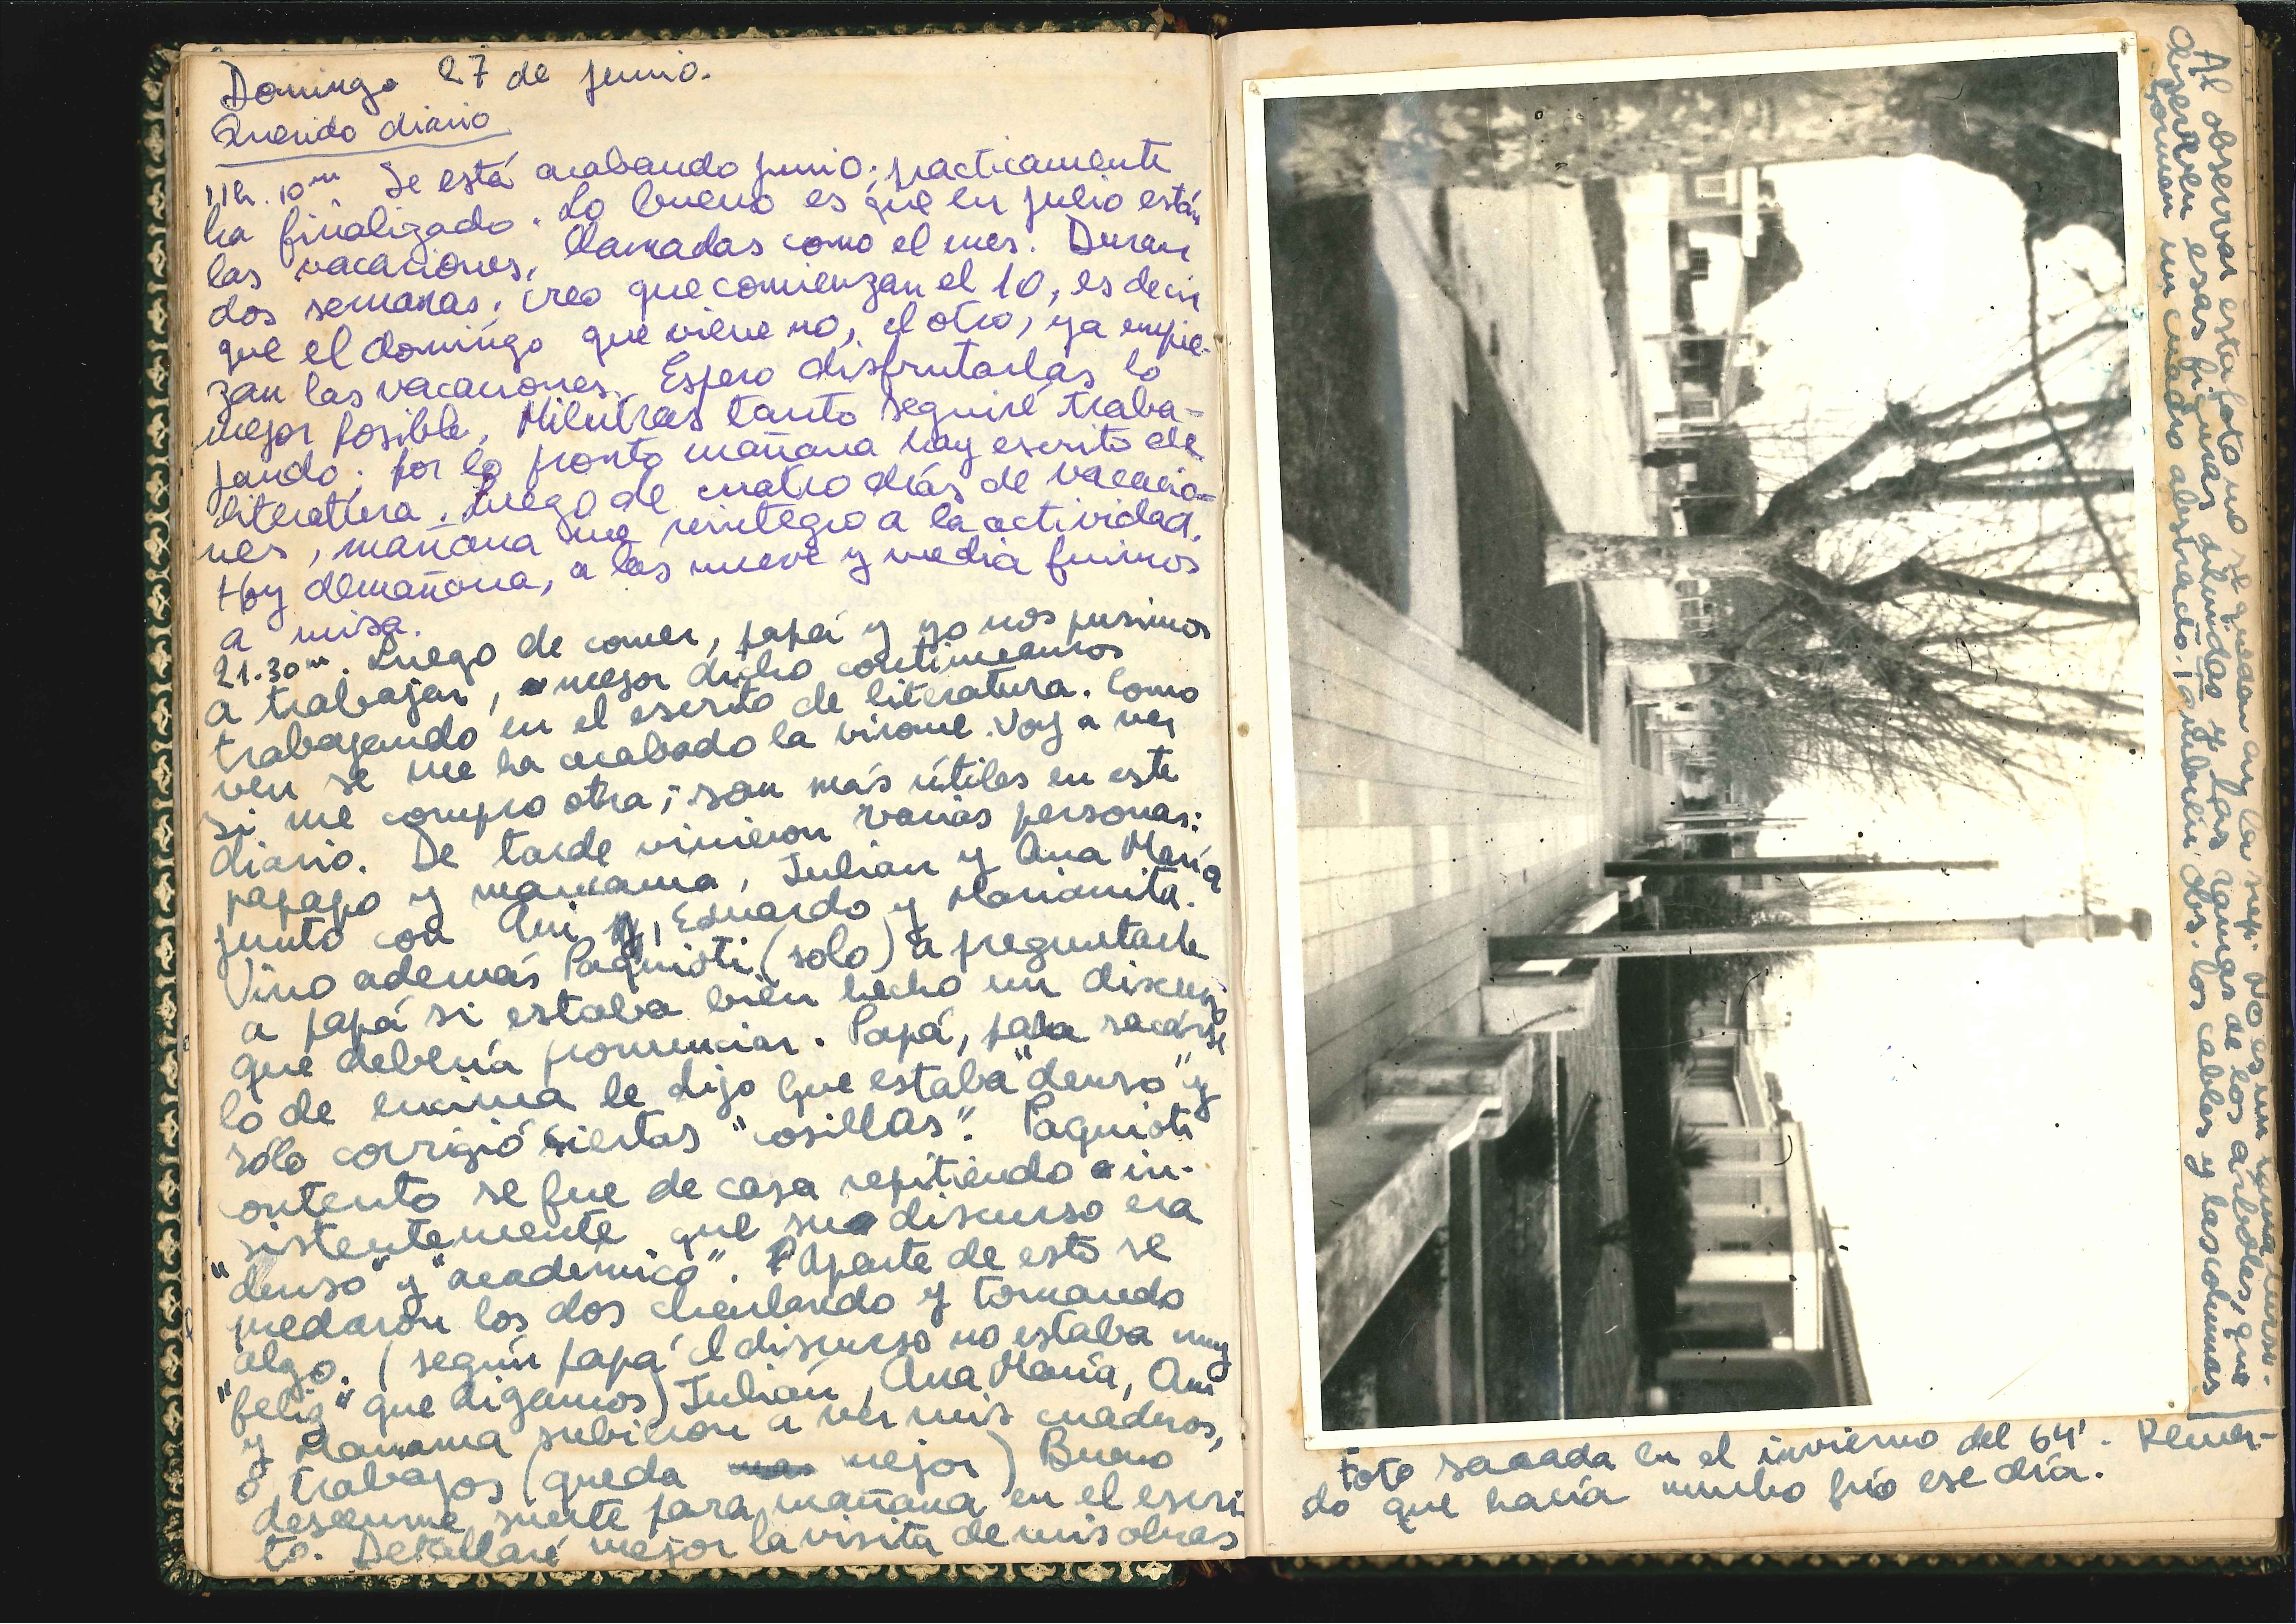 Domingo 27 de junio.
Querido diario
11h. 10m Se está acabando junio; practicamente
ha finalizado. Lo bueno es que en julio están
las vacaciones, llamadas como el mes. Duran
dos semanas, creo que comienzan el 10, es decir
que el domingo que viene no, el otro, ya empie-
zan las vacaciones. Espero disfrutarlas lo
mejor posible. Mientras tanto seguiré traba-
jando; por lo pronto mañana hay escrito de
literatura. Luego de cuatro días de vacacio-
nes, mañana me reintegro a la actividad.
Hoy demañana, a las nueve y media fuimos
a misa.
21.30m. Luego de comer, papá y yo nos pusimos
a trabajar, mejor dicho continuamos
trabajando en el escrito de literatura. Como
ven se me ha acabado la virome. Voy a ver
si me compro otra; son más útiles en este
diario. De tarde vinieron varias personas:
papapo y mamama, Julian y Ana María
junto con Ani, Eduardo y Marianita.
Vino además Paguioti (solo) a preguntarle
a papá si estaba bien hecho un discurso
que debería pronunciar. Papá, para sacárse
lo de encima le dijo que estaba "denso" y
sólo corrigió ciertas "cosillas". Paguioti
contento se fue de casa repitiendo in-
sistentemente que su discurso era
"denso" y "academico". Aparte de esto se
quedaron los dos charlando y tomando
algo. (según papá el discurso no estaba muy
"feliz" que digamos) Julián, Ana María, Ani
y Mamama subieron a ver mis cuadros,
o trabajos (queda mejor) Bueno
deséenme suerte para mañana en el escri
to. Detallaré mejor la visita de mis obras
Al observar esta foto no se quedan en lo sepi. No es una
observen esas figuras difundidas y las ramas de los árboles, que
forman un cuadro abstracto. También los. los cables y las columnas
Foto sacada en el invierno del 64'. Recuer-
do que hacía mucho frío ese día.